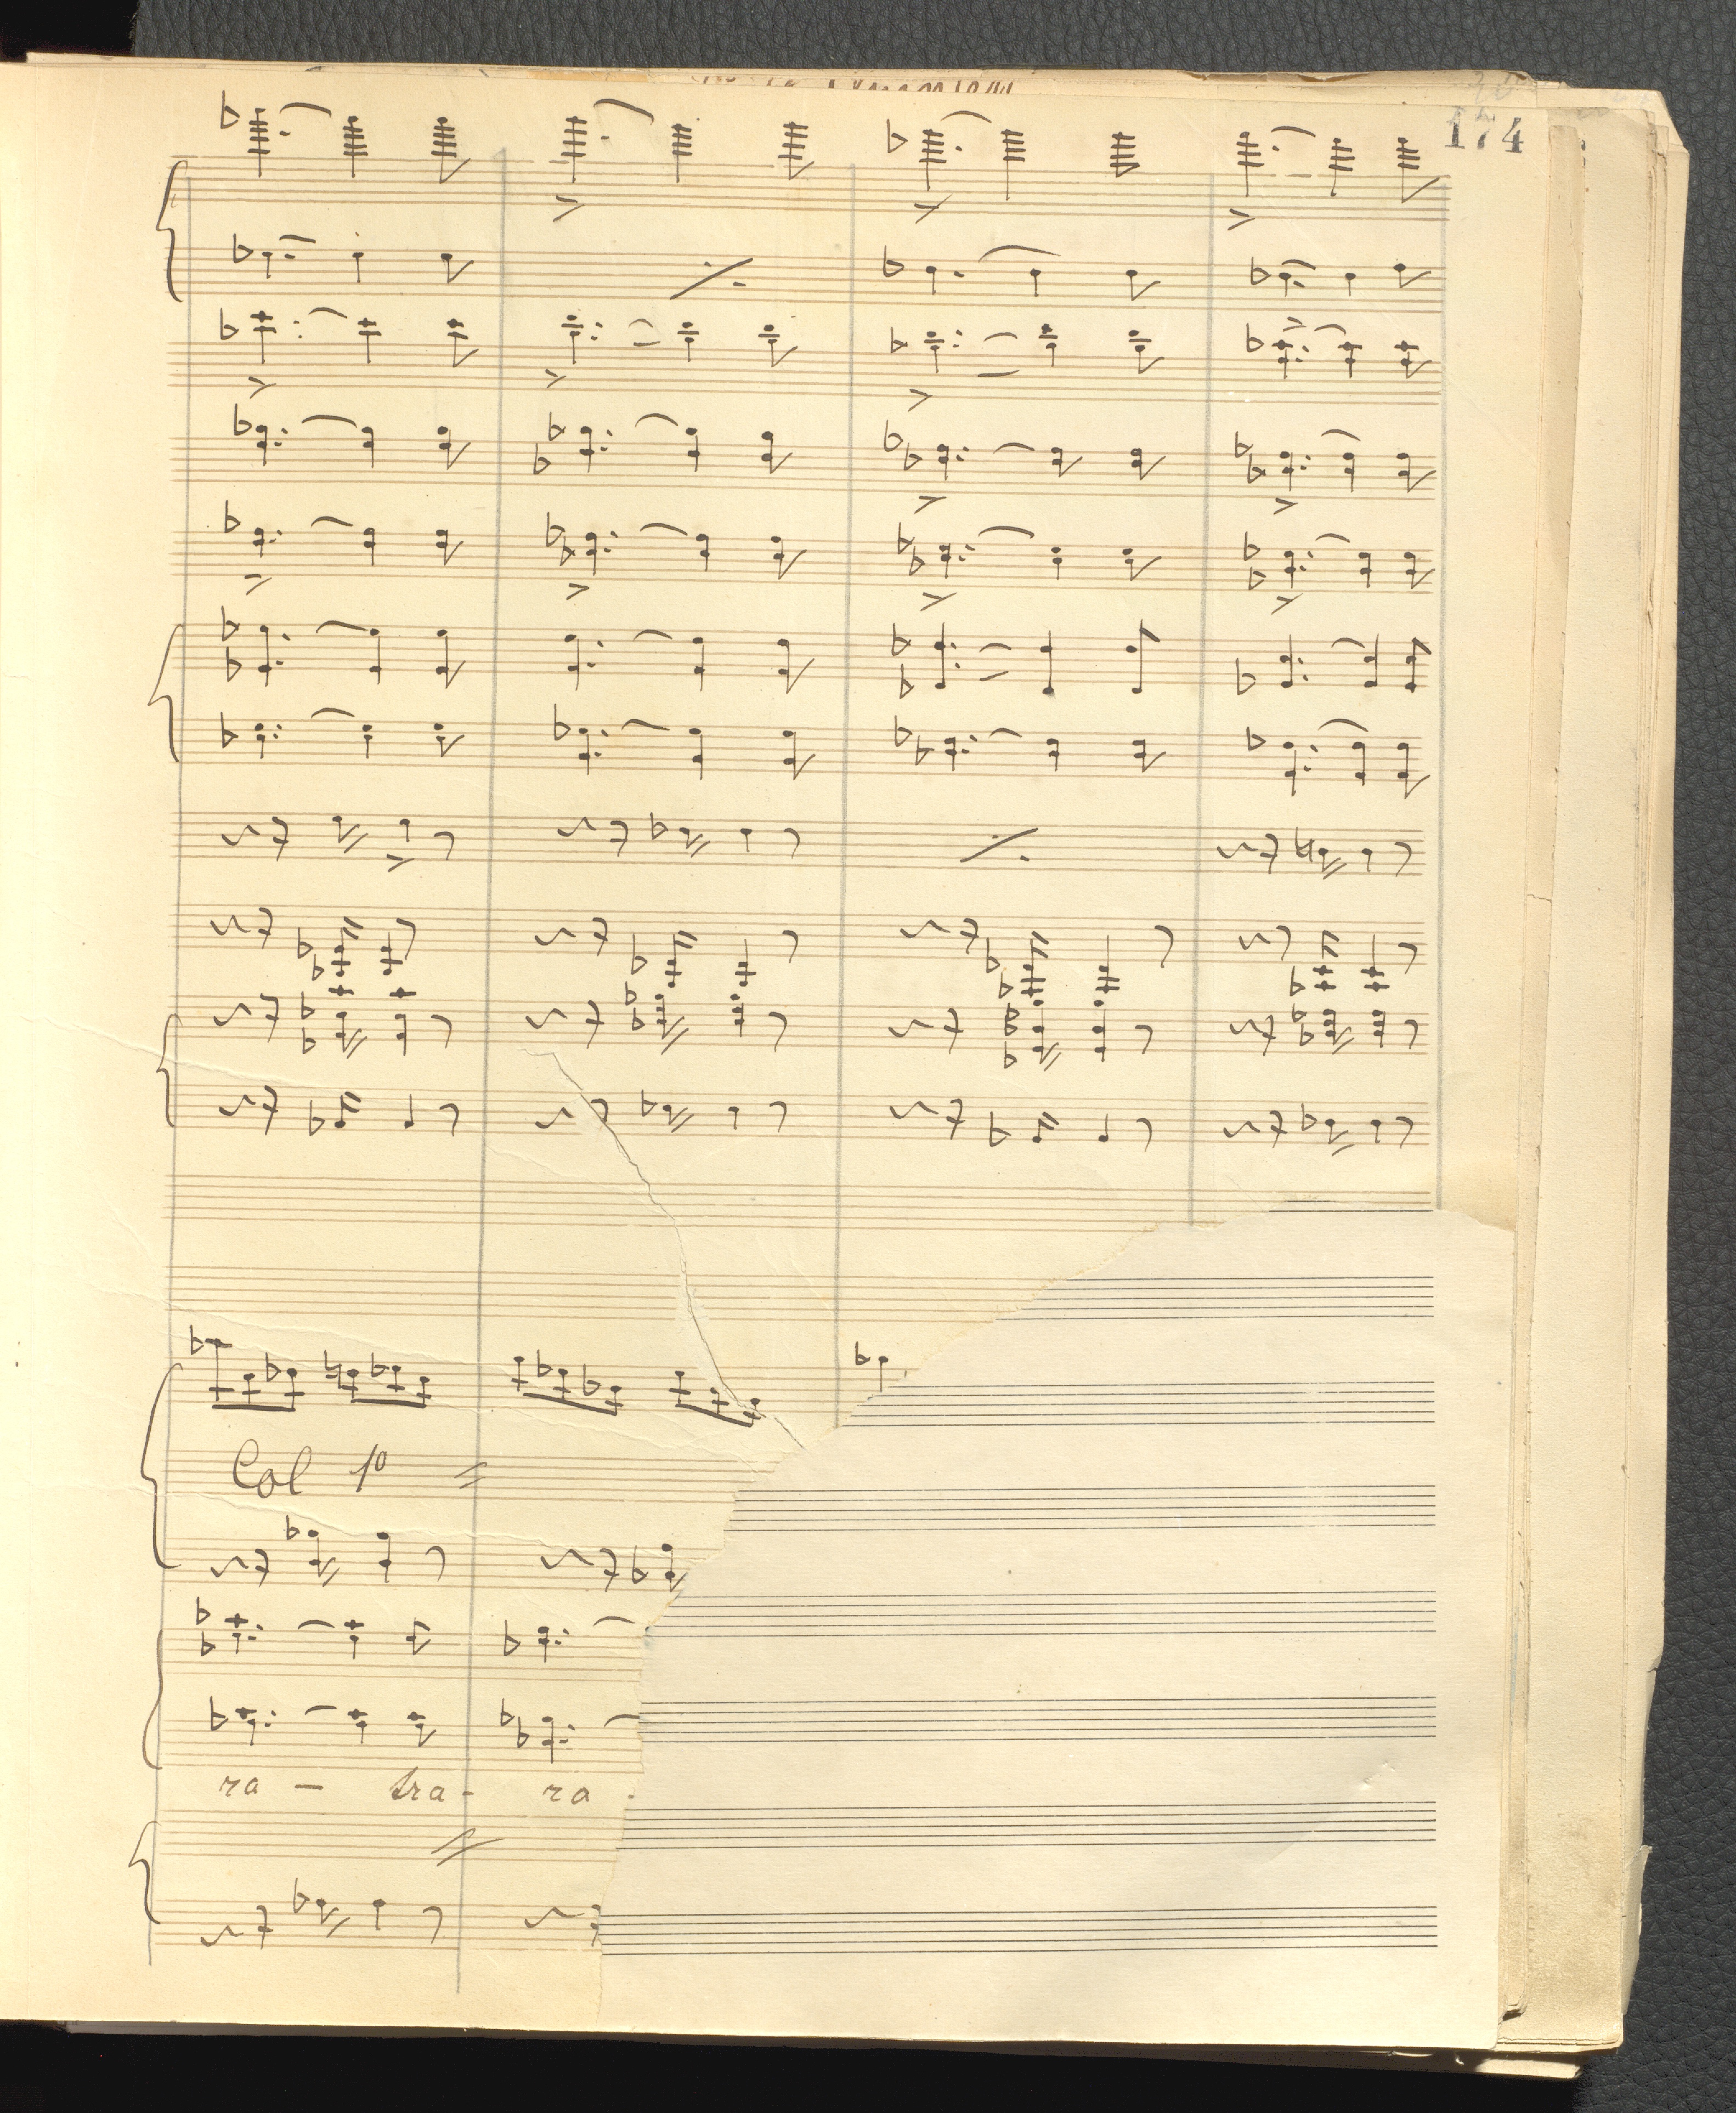 174
Col 1º
ra — tra - ra -